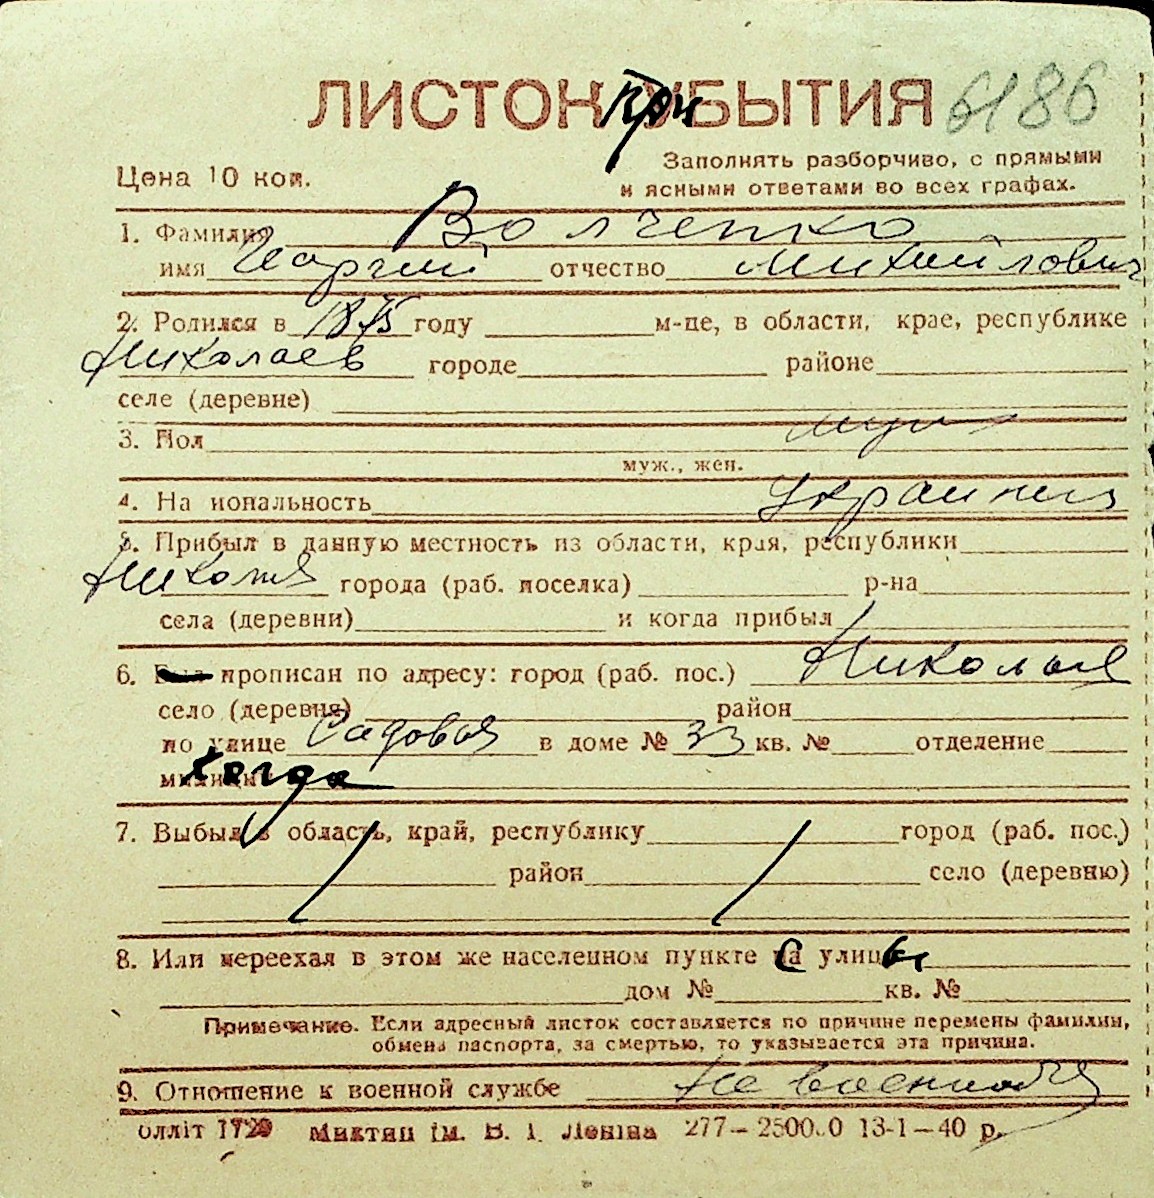 ЛИСТОК при УБЫТИЯ 6186
Цена 10 коп.
Заполнять разборчиво, с прямыми
и ясными ответами во всех графах.
1. Фамилия Волченко
имя Георгий отчество Михайлович
2. Родился в 1875 году м-це, в области, крае, республике
Николаев городе районе
селе (деревне)
3. Пол муж
муж., жен.
4. На иональность украинец
5. Прибыл в данную местность из области, края, республики
города (раб. поселка) р-на
села (деревни) и когда прибыл
6. Был прописан по адресу: город (раб. пос.)
село (деревня) район
по улице Садовая в доме № 33 кв. № отделение
милиции когда
7. Выбыл в область, край, республику город (раб. пос.)
район село (деревню)
8. Или переехал в этом же населенном пункте с улицы
дом № кв. №
Примечание. Если адресный листок составляется по причине перемены фамилии,
обмена паспорта, за смертью, то указывается эта причина.
9. Отношение к военной службе
олліт 1729 ім. В. І. Леніна 277–2500.0 13-1–40 р.